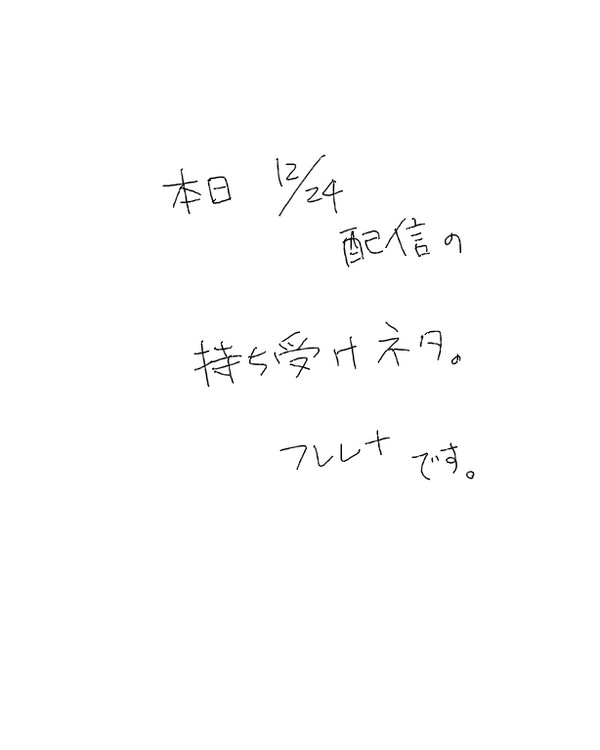 本日 12/24
配信の
持ち受けネタ。
フレレナです。